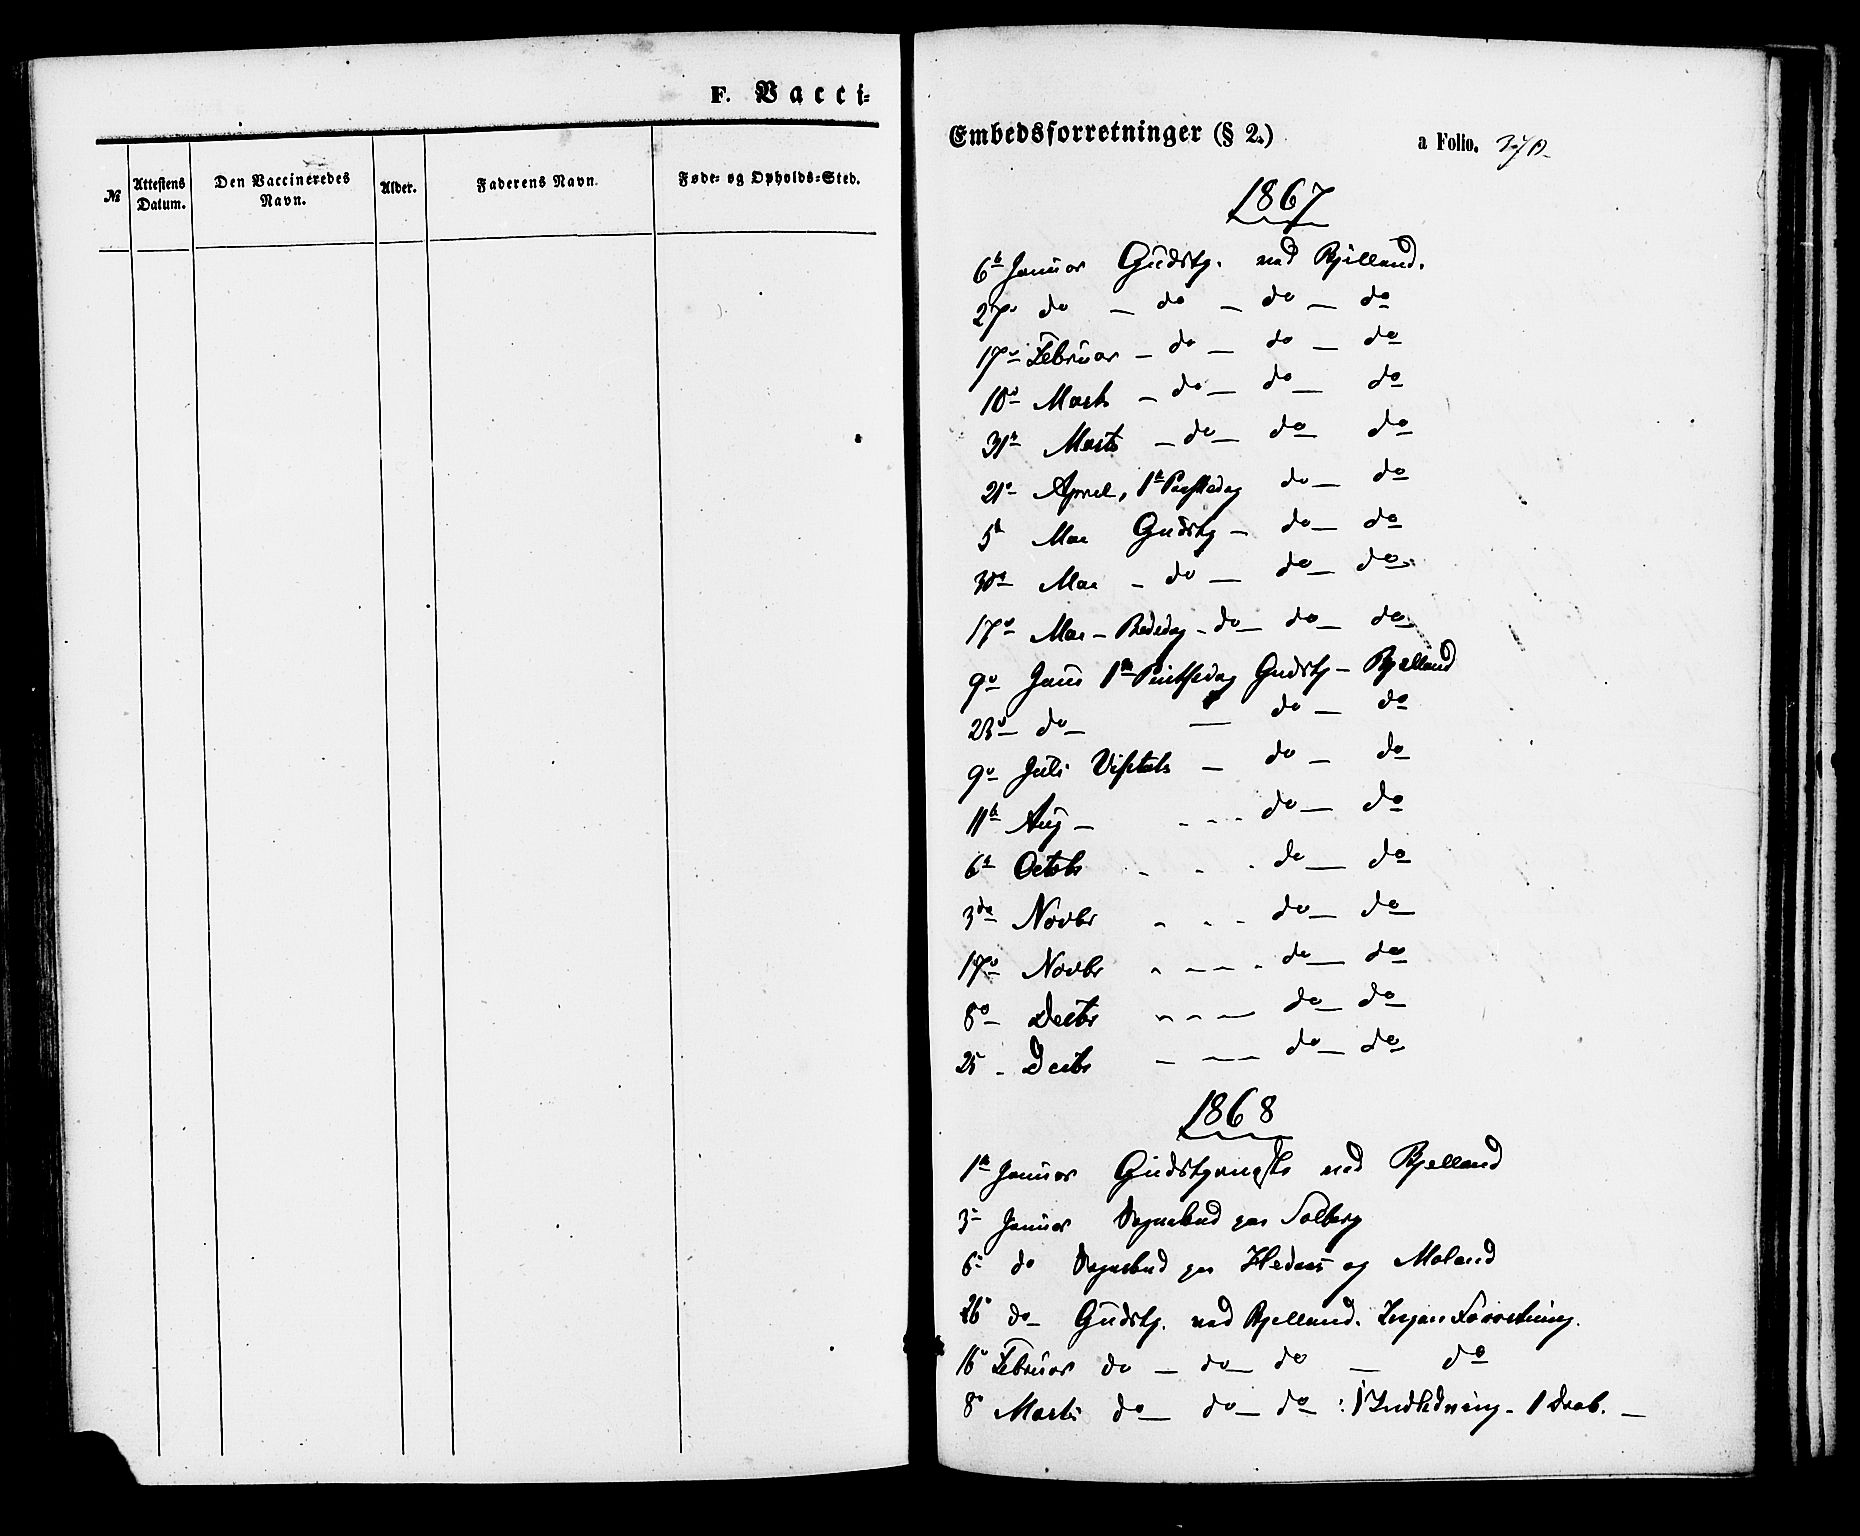 F. Vacci-
№ Attestens Datum. Den Vaccineredes Navn. Alder. Faderens Navn. Føde- og Opholds-Sted.
Embedsforretninger (§ 2.) a Folio.
1867
6te Januar Gudstj. ved Bjelland.
27de do — do — do — do
17de Februar — do — do — do
10de Marts — do — do — do
31te Marts — do — do do
21de April, 1te Paaskedag do — do
5te Mai Gudstj — do — do
30te Mai — do — do — do
17de Mai — Bededag — do — do — do
9de Juni 1te Pintsedag Gudstj — Bjelland
23de do — — do — do
9de Juli Visitats — do — do
11te Aug — - - - do — do
6te Octob - - - do — do
3die Novbr - - - do — do
17de Novbr - - - - do — do
8de Decbr - - — do — do
25 - Decbr - — — do — do
1868
1te Januar Gudstjeneste ved Bjelland
3die Januar Sognebud paa Solberg
6te do Sognebud paa og Moland
26de do Gudstj. ved Bjelland. Ingen Forretning.
16de Februar do — do — do — do
8de Marts do — do — do : 1 Indledning - 1 Daab. —